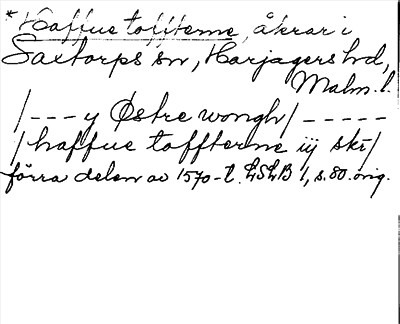 *Haffue toffterne, åkrar i
Saxtorps sn, Harjagers hd,
Malm. l.
/--- y Østre wongh/-----
/haffue toffterne iij skr/
förra delen av 1570-t. LSLB 1, s. 80. orig.